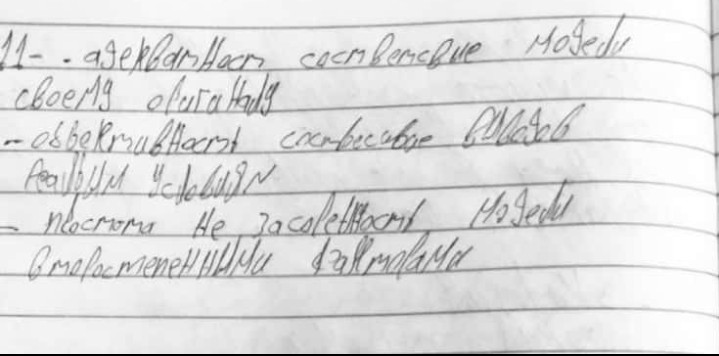 11- - адекватност соственсвие модели
своему оригиналу
- объективность соотвесивие выводов
реальным условиям
- простота не засоленность модели
второстепенными факторами